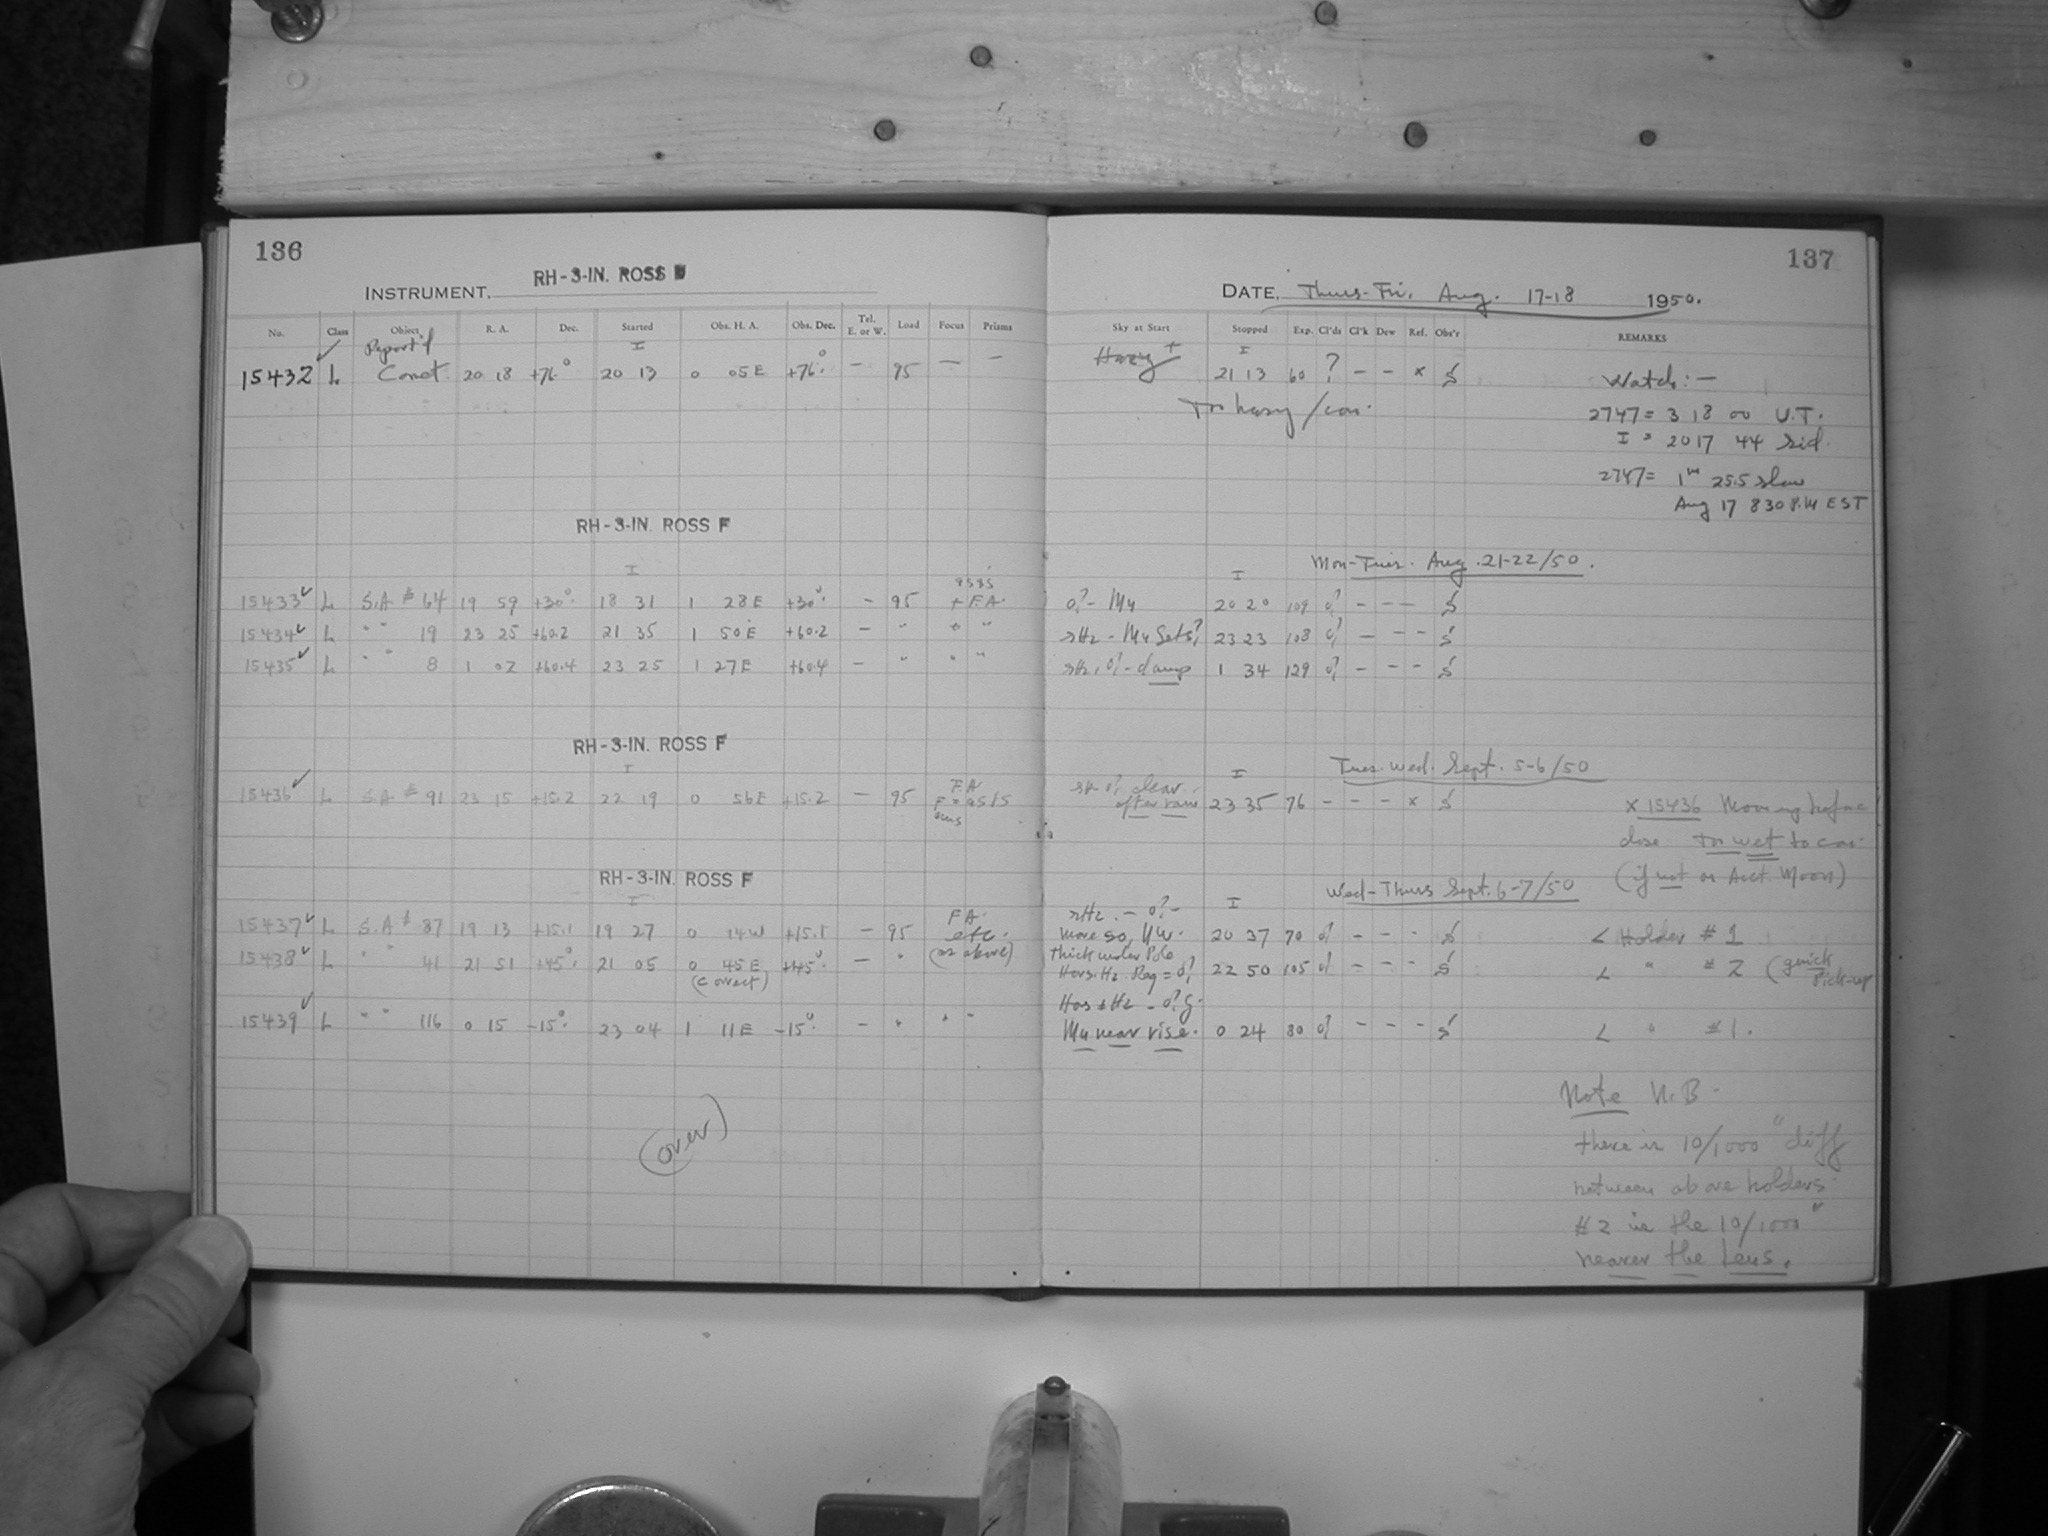 136
INSTRUMENT, RH-3-IN. ROSS
No. Class Object R. A. Dec. Started Obs. H. A. Obs. Dec. Tel. E. or W. Load Focus Prisms
Report'd I
15432 ✓ L Comet 20 18 +76° 20 13 0 05 E +76° — 95 — —
RH-3-IN. ROSS F
I
15433 ✓ L S.A. # 64 19 59 +30° 18 31 1 28 E +30° — 95 + F.A.
15434 ✓ L " " 19 23 25 +60.2 21 35 1 50 E +60.2 — " " "
15435 ✓ L " " 8 1 02 +60.4 23 25 1 27 E +60.4 — " " "
RH-3-IN. ROSS F
I
15436 ✓ L S.A. # 91 23 15 +15.2 22 19 0 56 E +15.2 — 95 F.A.
RH-3-IN. ROSS F
I
15437 ✓ L S.A # 87 19 13 +15.1 19 27 0 14 W +15.1 — 95 F.A. etc.
15438 ✓ L " " 41 21 51 +45° 21 05 0 45 E +45° — " (as above)
(correct)
15439 ✓ L " " 116 0 15 -15° 23 04 1 11 E -15° — " " "
(over)
137
DATE, Thurs-Fri. Aug. 17-18 1950.
Sky at Start Stopped Exp. Cl'ds Cl'k Dew Ref. Obs'r REMARKS
Hazy + I
21 13 60 ? — — x S
Too hazy /
Watch:—
2747 = 3 18 00 U.T.
I = 20 17 44 Sid.
2747 = 1m 25.5 slow
Aug 17 8 30 P.M EST
Mon-Tues. Aug. 21-22/50.
I
20 20 109 0? — — — S
23 23 108 0? — — — S
damp 1 34 129 0? — — — S
Tues-Wed. Sept. 5-6/50
I
clear after rain 23 35 76 — — — x S
x 15436 Moving before
close Too wet to
(if not on Acct. Moon)
Wed-Thurs Sept. 6-7/50
I
more so, 20 37 70 0? — — — S < Holder # 1
thick under Pole
22 50 105 0? — — — S < " # 2 (quick Pick-up
near rise. 0 24 80 0? — — — S < " # 1.
Note N.B.
there is 10/1000" diff
between above holders
#2 is the 10/1000"
nearer the Lens.